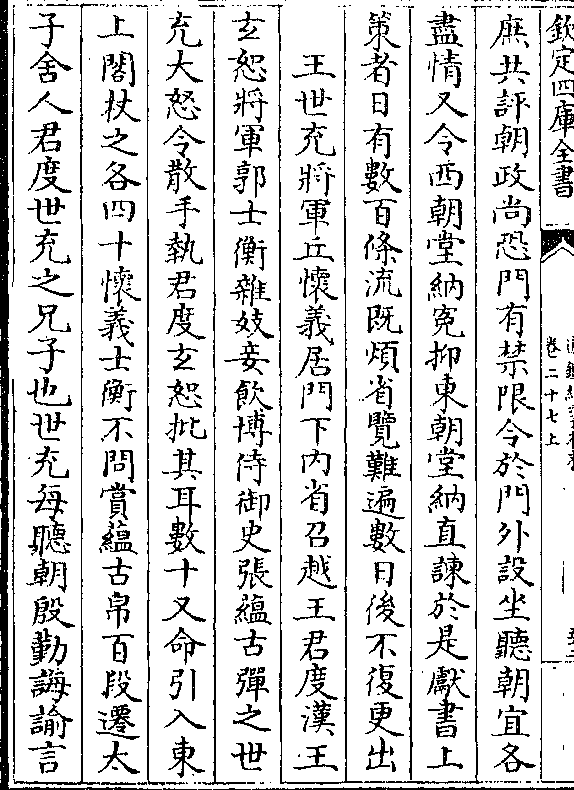 欽定四庫全書
卷二十七上
庶共評朝政尚恐門有禁限令於門外設坐聽朝宜各
盡情又令西朝堂納冤抑東朝堂納直諫於是獻書上
策者日有數百條流既煩省覽難遍數日後不復更出
王世充將軍丘懷義居門下内省召越王君度漢王
玄恕將軍郭士衡雜妓妾飲博侍御史張蘊古彈之世
充大怒令散手執君度玄恕批其耳數十又命引入東
上閤杖之各四十懷義士衡不問賞蘊古帛百段遷太
子舍人君度世充之兄子也世充每聽朝殷勤誨諭言